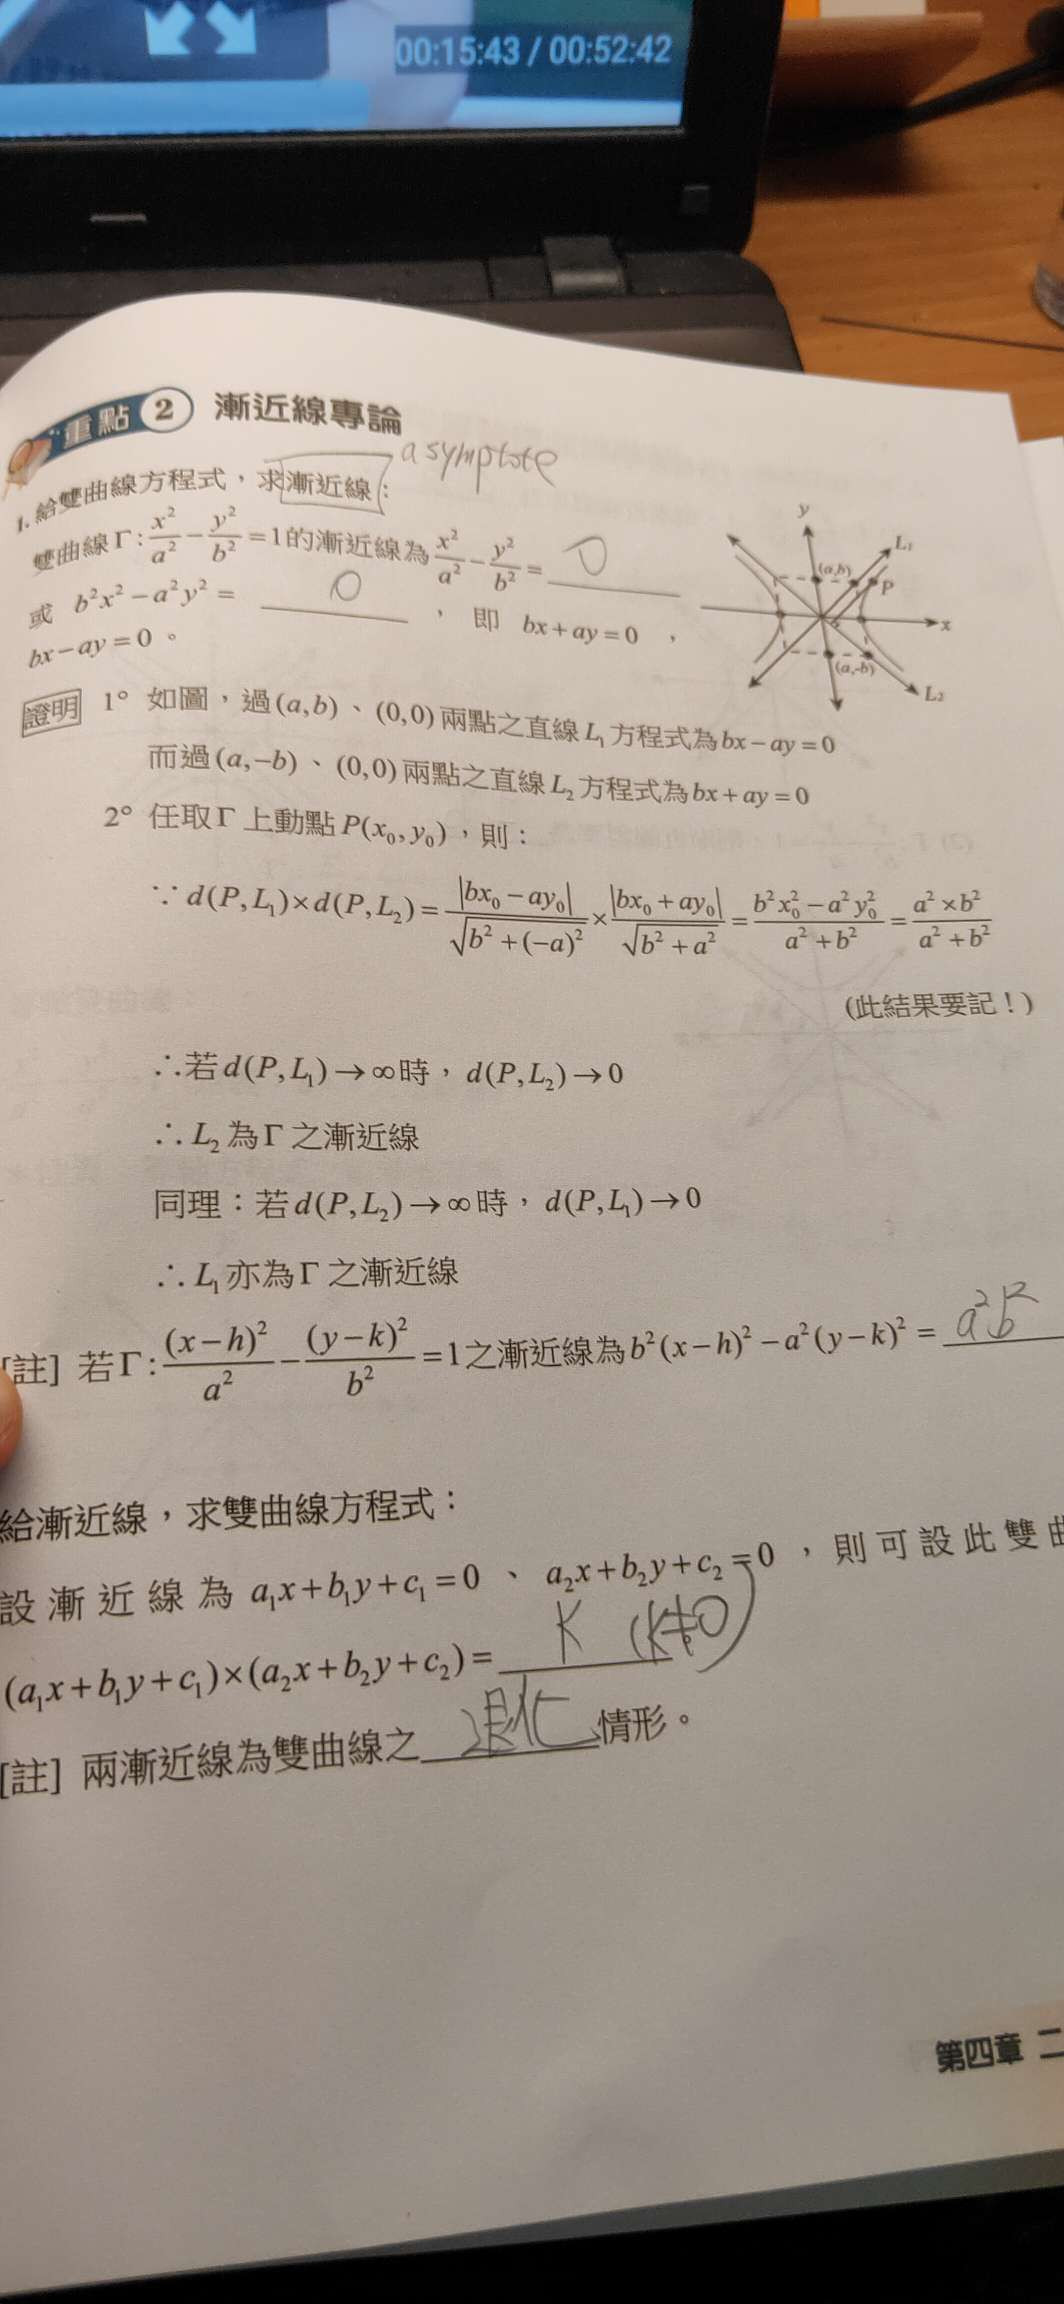 00:15:43 / 00:52:42
重點 2 漸近線專論
asymptote
1. 給雙曲線方程式，求漸近線：
雙曲線Γ: x²/a² - y²/b² = 1的漸近線為 x²/a² - y²/b² = 0
或 b²x² - a²y² = 0 ，即 bx + ay = 0 ，
bx - ay = 0 。
y
L₁
(a,b)
P
x
(a,-b)
L₂
證明 1° 如圖，過(a,b)、(0,0)兩點之直線L₁方程式為bx - ay = 0
而過(a,-b)、(0,0)兩點之直線L₂方程式為bx + ay = 0
2° 任取Γ上動點P(x₀,y₀)，則：
∵ d(P,L₁)×d(P,L₂) = |bx₀ - ay₀|/√(b² + (-a)²) × |bx₀ + ay₀|/√(b² + a²) = (b²x₀² - a²y₀²)/(a² + b²) = (a²×b²)/(a² + b²)
(此結果要記！)
∴若d(P,L₁)→∞時，d(P,L₂)→0
∴ L₂為Γ之漸近線
同理：若d(P,L₂)→∞時，d(P,L₁)→0
∴ L₁亦為Γ之漸近線
[註] 若Γ: (x-h)²/a² - (y-k)²/b² = 1之漸近線為b²(x-h)² - a²(y-k)² = a²b²
給漸近線，求雙曲線方程式：
設漸近線為 a₁x + b₁y + c₁ = 0 、 a₂x + b₂y + c₂ = 0 ，則可設此雙曲
(a₁x + b₁y + c₁)×(a₂x + b₂y + c₂) = K (k≠0)
[註] 兩漸近線為雙曲線之退化情形。
第四章 二